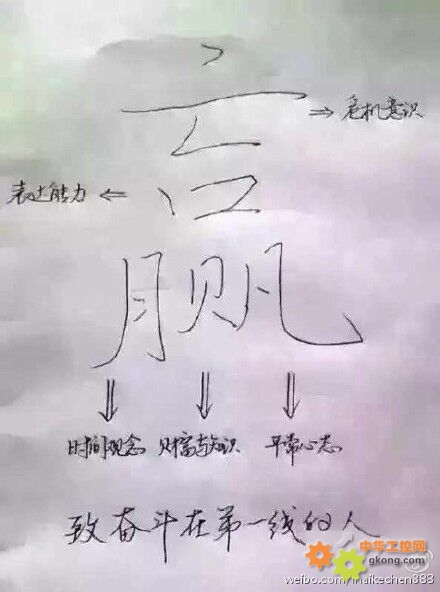 赢
危机意识
表达能力
时间观念 财富与知识 平常心态
致奋斗在第一线的人
中华工控网
gkong.com